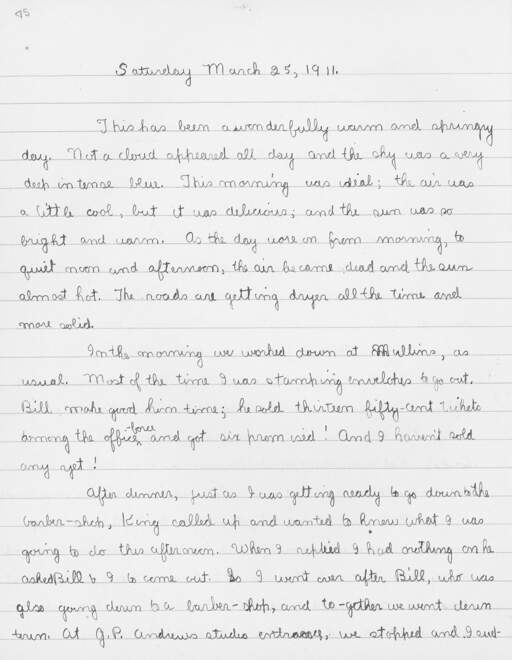 45
Saturday March 25, 1911.
This has been a wonderfully warm and springy
day. Not a cloud appeared all day and the sky was a very
deep intense blue. This morning was ideal; the air was
a little cool, but it was delicious; and the sun was so
bright and warm. As the day wore on from morning, to
quiet noon and afternoon, the air became dead and the sun
almost hot. The roads are getting dryer all the time and
more solid.
In the morning we worked down at Mullins, as
usual. Most of the time I was stamping envelopes to go out.
Bill make good him time; he sold thirteen fifty-cent tickets
among the office-force and got six promised! And I haven't sold
any yet!
After dinner, just as I was getting ready to go down to the
barber-shop, King called up and wanted to know what I was
going to do this afternoon. When I replied I had nothing on he
asked Bill & I to come out. So I went over after Bill, who was
also going down to a barber-shop, and to-gether we went down
town. At J.P. Andrews studio entrances, we stopped and I